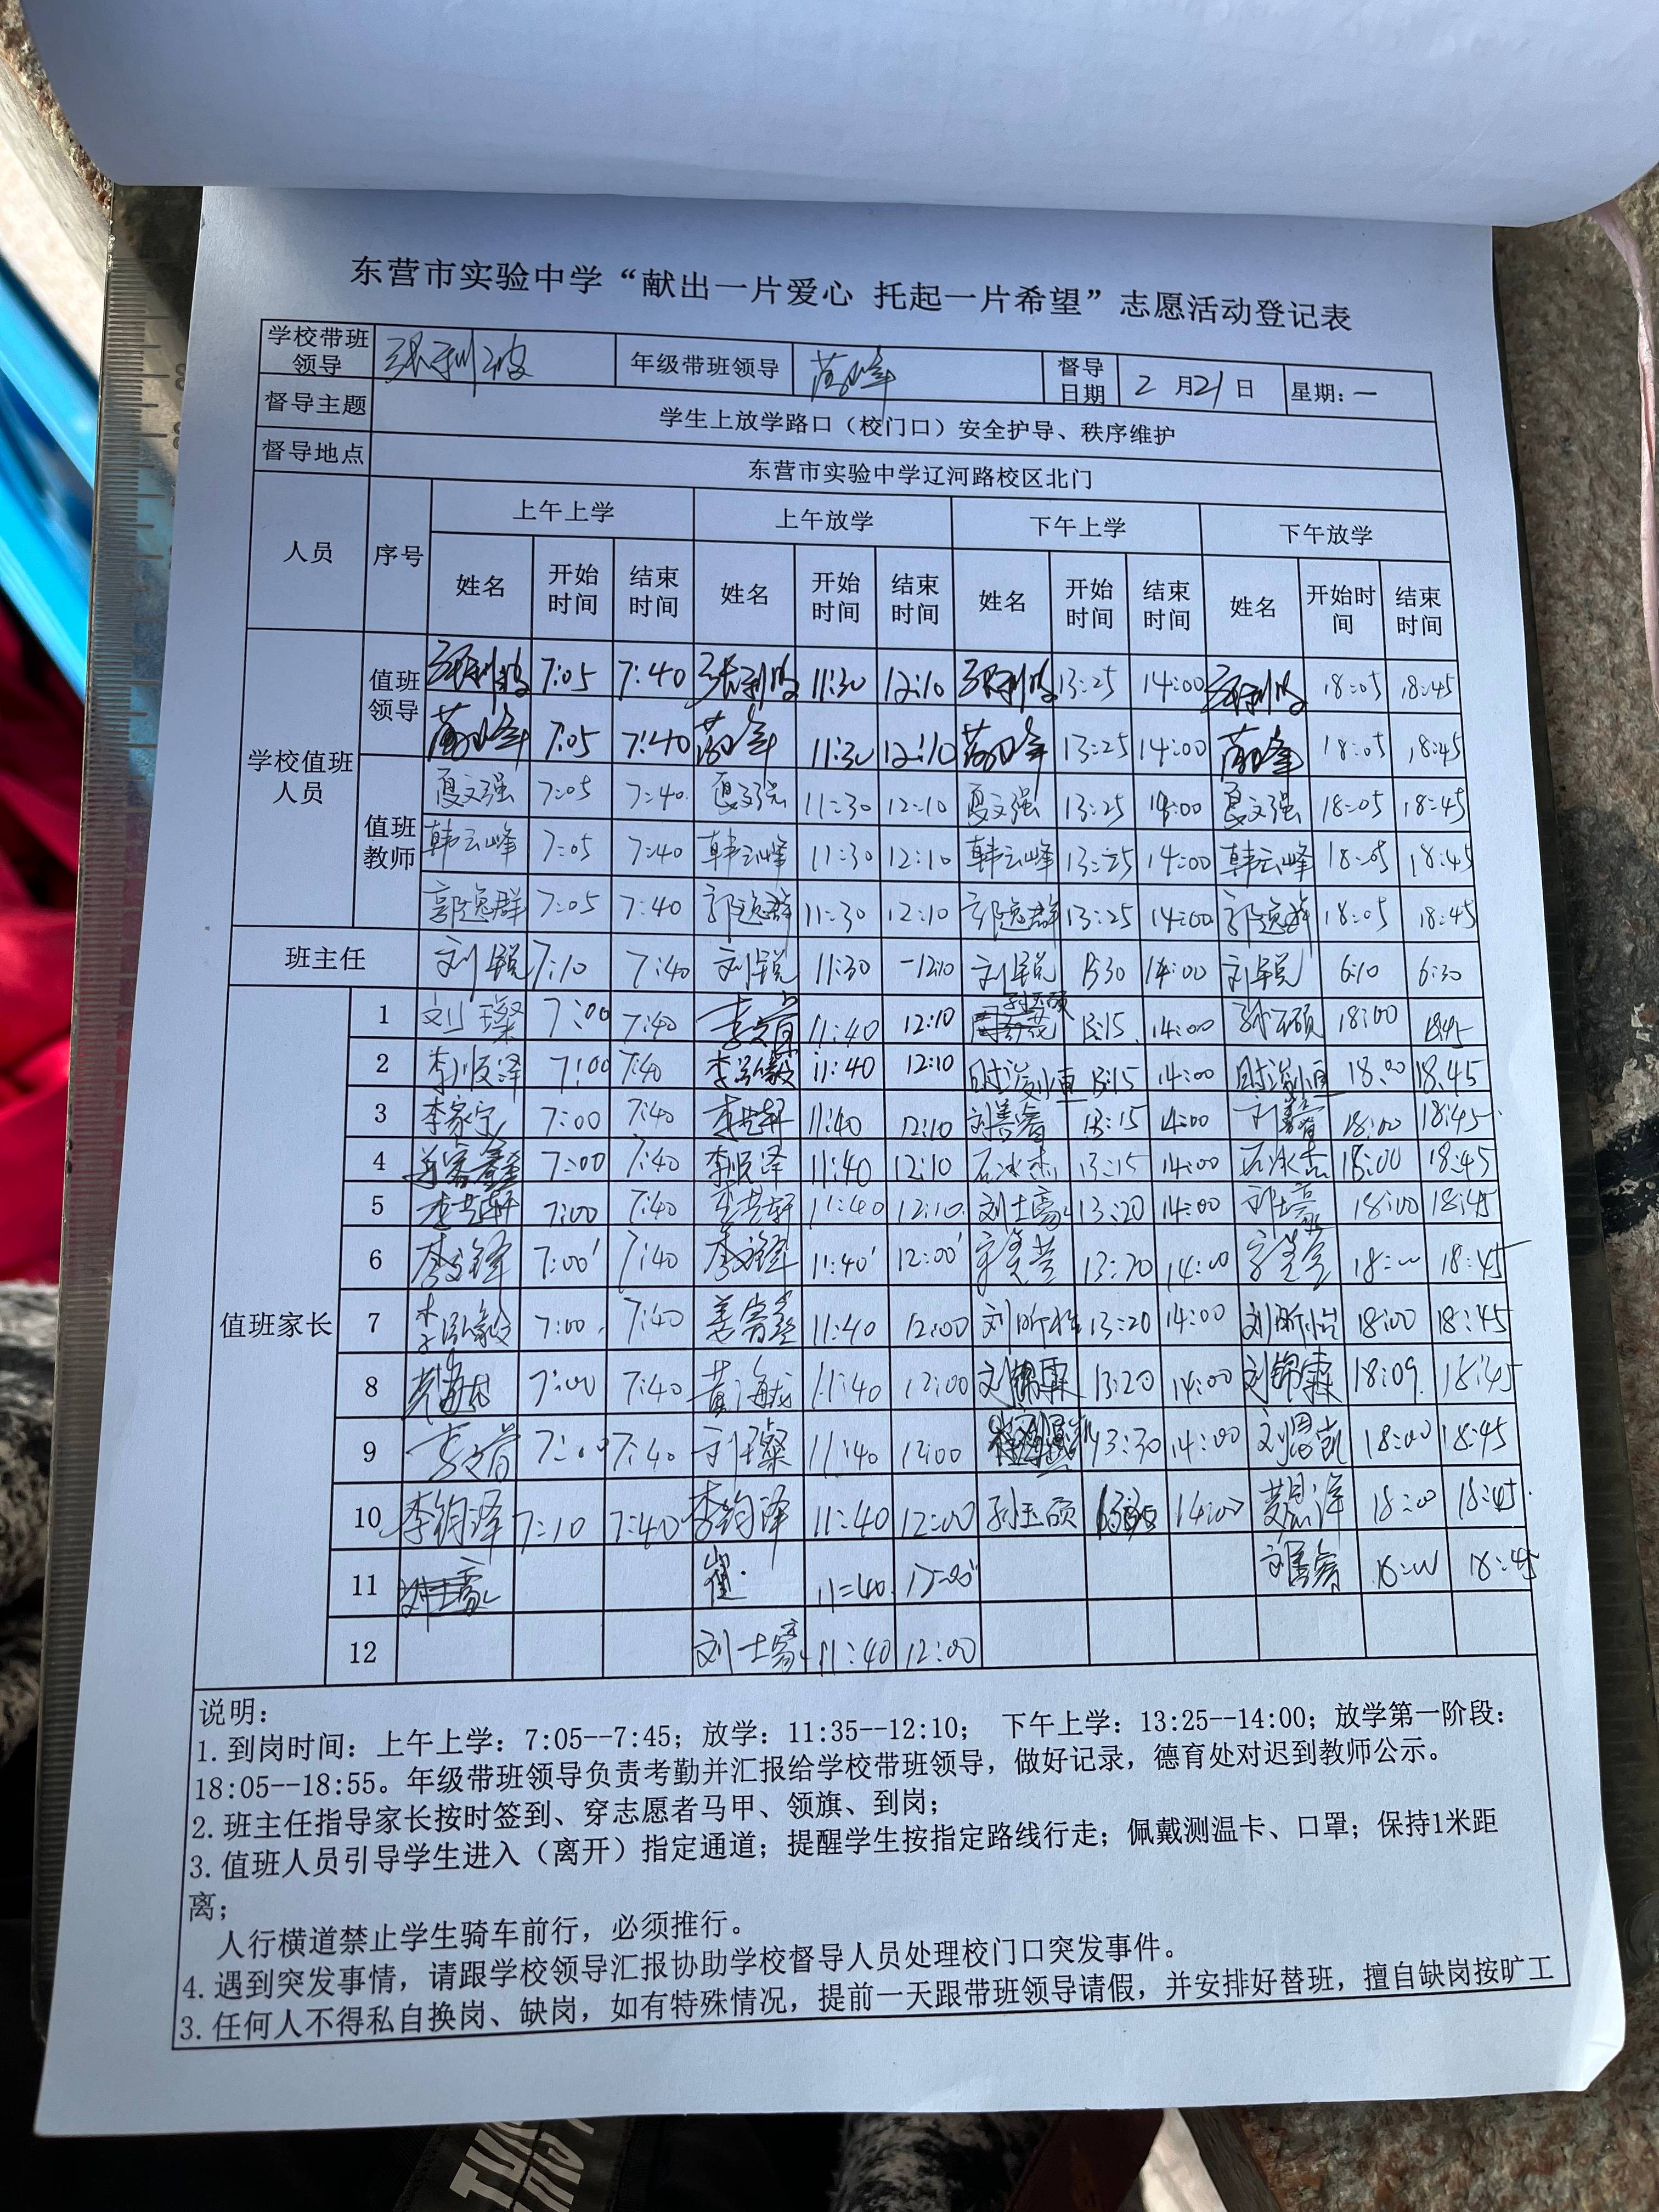 东营市实验中学“献出一片爱心 托起一片希望”志愿活动登记表
学校带班领导 张利波 年级带班领导 督导日期 2月21日 星期:一
督导主题 学生上放学路口（校门口）安全护导、秩序维护
督导地点 东营市实验中学辽河路校区北门
人员 序号 上午上学 上午放学 下午上学 下午放学
姓名 开始时间 结束时间 姓名 开始时间 结束时间 姓名 开始时间 结束时间 姓名 开始时间 结束时间
学校值班人员 值班领导 张利波 7:05 7:40 张利波 11:30 12:10 张利波 13:25 14:00 张利波 18:05 18:45
7:05 7:40 11:30 12:10 13:25 14:00 18:05 18:45
值班教师 夏文强 7:05 7:40 夏文强 11:30 12:10 夏文强 13:25 14:00 夏文强 18:05 18:45
韩云峰 7:05 7:40 韩云峰 11:30 12:10 韩云峰 13:25 14:00 韩云峰 18:05 18:45
郭逸群 7:05 7:40 郭逸群 11:30 12:10 郭逸群 13:25 14:00 郭逸群 18:05 18:45
班主任 刘锐 7:10 7:40 刘锐 11:30 -12:10 刘锐 13:30 14:00 刘锐 6:10 6:30
值班家长
1 刘璨 7:00 7:40 11:40 12:10 孙玉硕 13:15 14:00 孙玉硕 18:00 18:45
2 李顺泽 7:00 7:40 李泓毅 11:40 12:10 13:15 14:00 18:00 18:45
3 李家宝 7:00 7:40 李艺轩 11:40 12:10 刘善睿 13:15 14:00 刘善睿 18:00 18:45
4 7:00 7:40 李顺泽 11:40 12:10 石冰杰 13:15 14:00 石冰杰 18:00 18:45
5 李艺轩 7:00 7:40 李艺轩 11:40 12:10 刘士豪 13:20 14:00 刘士豪 18:00 18:45
6 李文锋 7:00 7:40 李文锋 11:40 12:00 13:20 14:00 18:00 18:45
7 李泓毅 7:00 7:40 11:40 12:00 刘昕怡 13:20 14:00 刘昕怡 18:00 18:45
8 黄海龙 7:00 7:40 黄海龙 11:40 12:00 刘锦霖 13:20 14:00 刘锦霖 18:09 18:45
9 7:00 7:40 刘璨 11:40 12:00 13:30 14:00 刘恩凯 18:00 18:45
10 李钧泽 7:10 7:40 李钧泽 11:40 12:00 孙玉硕 14:00 18:00 18:45
11 崔 11:40 12:00 刘善睿 18:00 18:45
12 刘士豪 11:40 12:00
说明：
1.到岗时间：上午上学：7:05--7:45；放学：11:35--12:10； 下午上学：13:25--14:00；放学第一阶段：
18:05--18:55。年级带班领导负责考勤并汇报给学校带班领导，做好记录，德育处对迟到教师公示。
2.班主任指导家长按时签到、穿志愿者马甲、领旗、到岗；
3.值班人员引导学生进入（离开）指定通道；提醒学生按指定路线行走；佩戴测温卡、口罩；保持1米距
离；
人行横道禁止学生骑车前行，必须推行。
4.遇到突发事情，请跟学校领导汇报协助学校督导人员处理校门口突发事件。
3.任何人不得私自换岗、缺岗，如有特殊情况，提前一天跟带班领导请假，并安排好替班，擅自缺岗按旷工